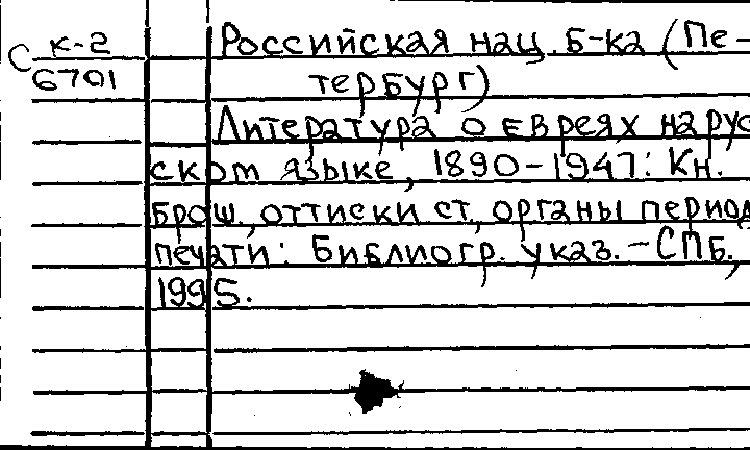 С К-2
6701
Российская нац. Б-ка (Пе-
тербург)
Литература о евреях на рус
ском языке, 1890-1947: Кн.
брош., оттиски ст., органы период
печати: Библиогр. указ. - СПБ.,
1995.